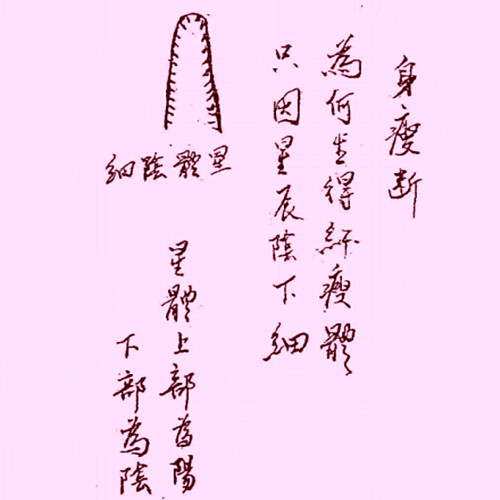 身瘦断
為何生得瘦體
只因星辰陰下細
星體陰細
星體上部為陽
下部為陰